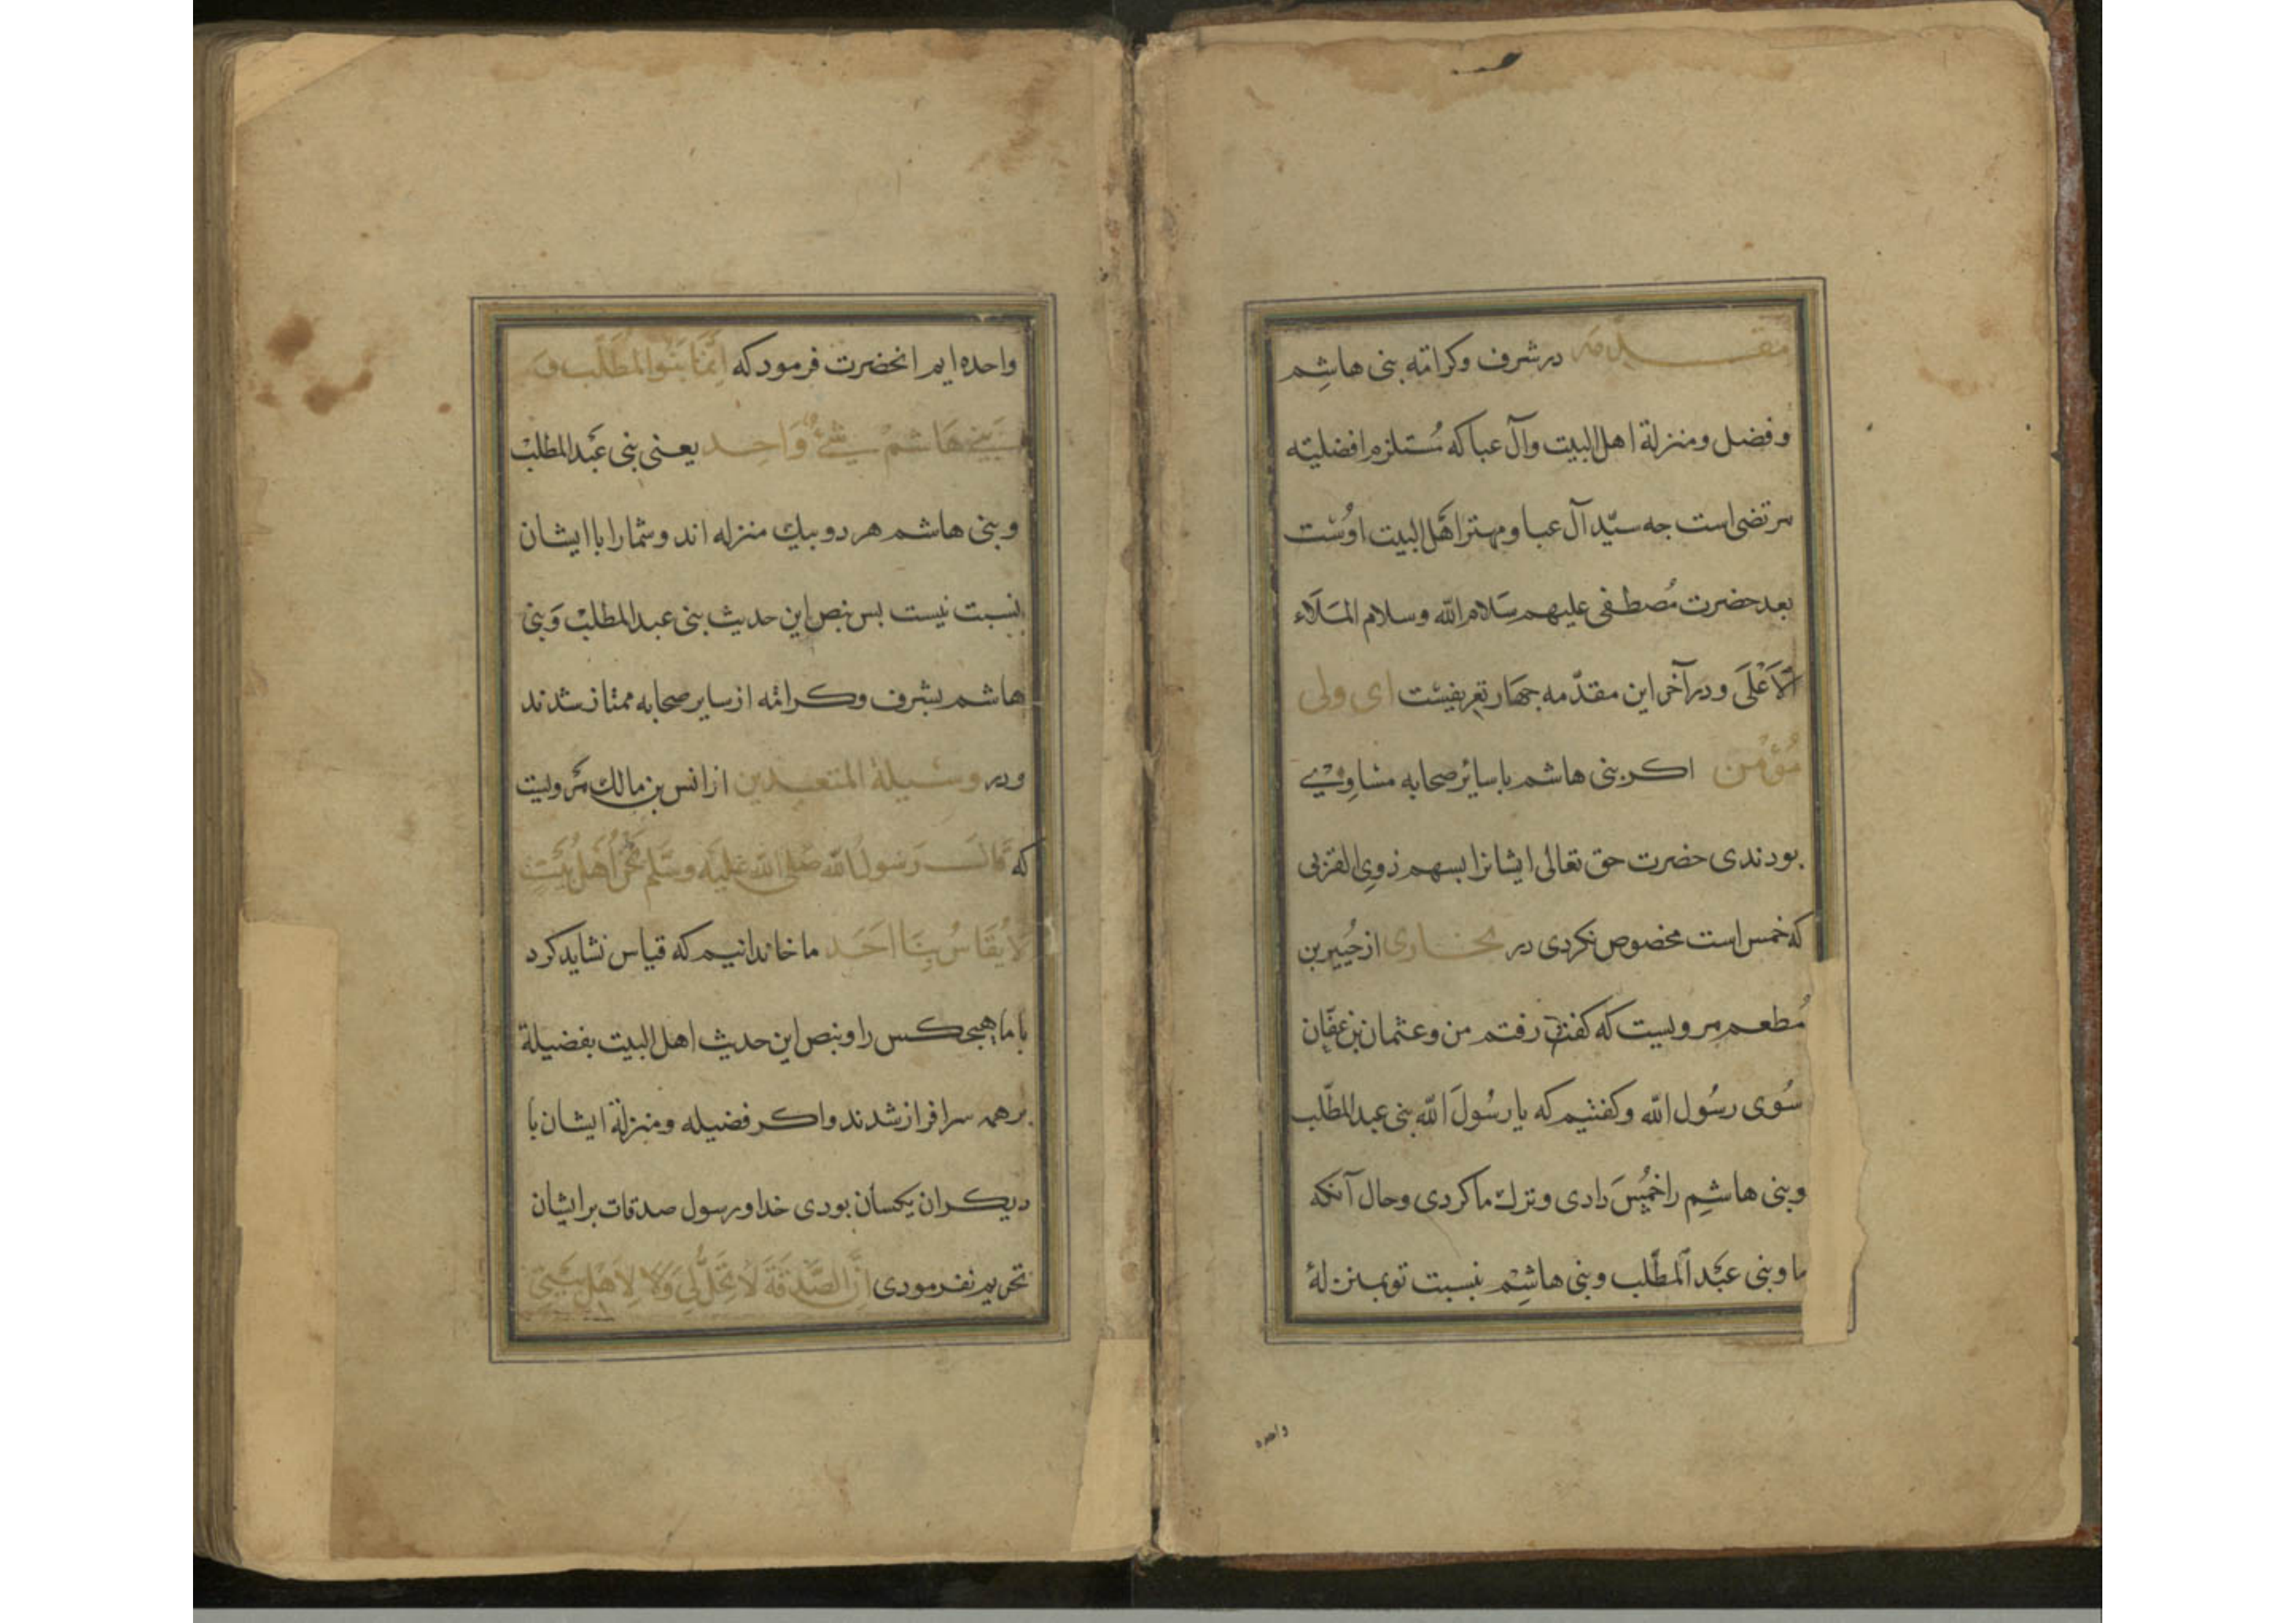 مقدمه در شرف وکرامة بنی هاشِم
وفضل ومنزلة اهل البیت وآل عبا که مُستلزم افضلیته
مرتضی است جه سیّد آل عبا ومهتر اهَل البیت اوسُت
بعد حضرت مُصطفی علیهم سَلام الله وسلام المَلَاء
الاَعْلَی ودر آخر این مقدّمه جهَار تعریفیست ای ولی
مُؤمن اکر بنی هاشم با سائر صحابه متساوِیْ
بودندی حضرت حق تعالی ایشانرا بسهم ذوی القربی
که خمس است مخصوص نکردی در بخاری از جُبیر بن
مُطعم مرویست که کفت رفتم من وعثمان بن عفّان
سُوی رسُول الله وکفتیم که یا رسُولَ الله بنی عبد المطّلب
وبنی هاشِم را خمُسَ دادی وترك ما کردی وحال آنکه
ما وبنی عبَد اَلمطّلب وبنی هاشِم نسبت تو بمنزلهٔ
واحده
واحده ایم انحضرت فرمود که اِنَّمَا بَنُو المُطَّلَب وَ
بَنِي هَاشم شَيْءٌ وَاحِد یعنی بنی عبَد المطلب
وبنی هاشم هر دو بیك منزله اند وشما را با ایشان
نسبت نیست بس بنص این حدیث بنی عبد المطلب وَبنی
هاشم بشرف وکرامة از سایر صحابه ممتاز شدند
ودر وسیلة المتعبدین از انس بن مالك مَرویست
که قَالَ رَسُولُ الله صَلی الله عَلیَه وسَلم نَحْنُ اَهْلُ بَیَتٍ
لاَ یُقَاسُ بِنَا اَحَد ما خاندانیم که قیاس نشاید کرد
با ما هیجکس را وبنص این حدیث اهل البیت بفضیلة
بر همه سرافراز شدند واکر فضیله ومنزلة ایشان با
دیکران یکسان بودی خدا ورسول صدقات بر ایشان
تحریم نفرمودی اِنَّ الصَّدَقَةَ لاَ تَحَلُّ لِي وَلاَ لِاَهْلِ بَیْتِي